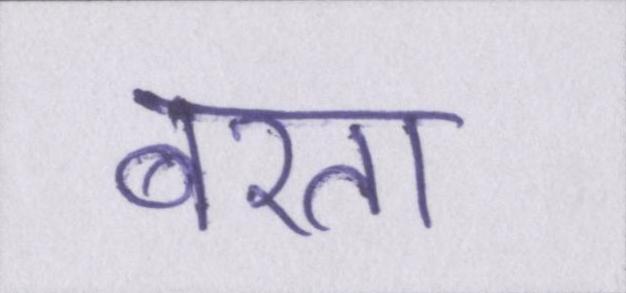 बरता